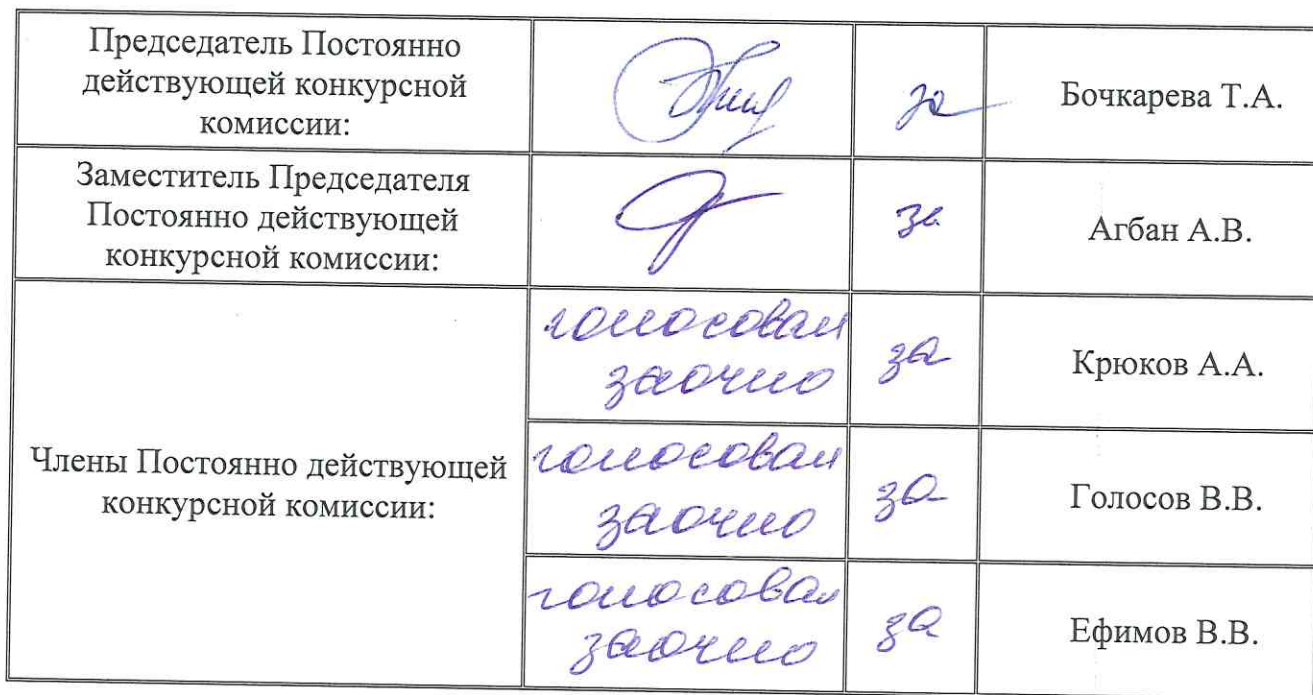 Председатель Постоянно
действующей конкурсной
комиссии:
за
Бочкарева Т.А.
Заместитель Председателя
Постоянно действующей
конкурсной комиссии:
за
Агбан А.В.
Члены Постоянно действующей
конкурсной комиссии:
голосовал
заочно
за
Крюков А.А.
голосовал
заочно
за
Голосов В.В.
голосовал
заочно
за
Ефимов В.В.